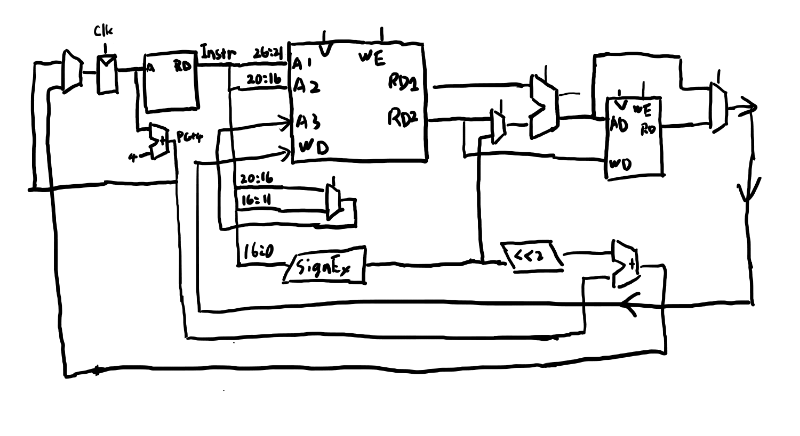 Clk
A RD
Instr
26:21
20:16
A1
A2
A3
WD
WE
RD1
RD2
+
4
PC+4
20:16
16:11
16:0
SignEx
<<2
+
WE
AD
RD
WD